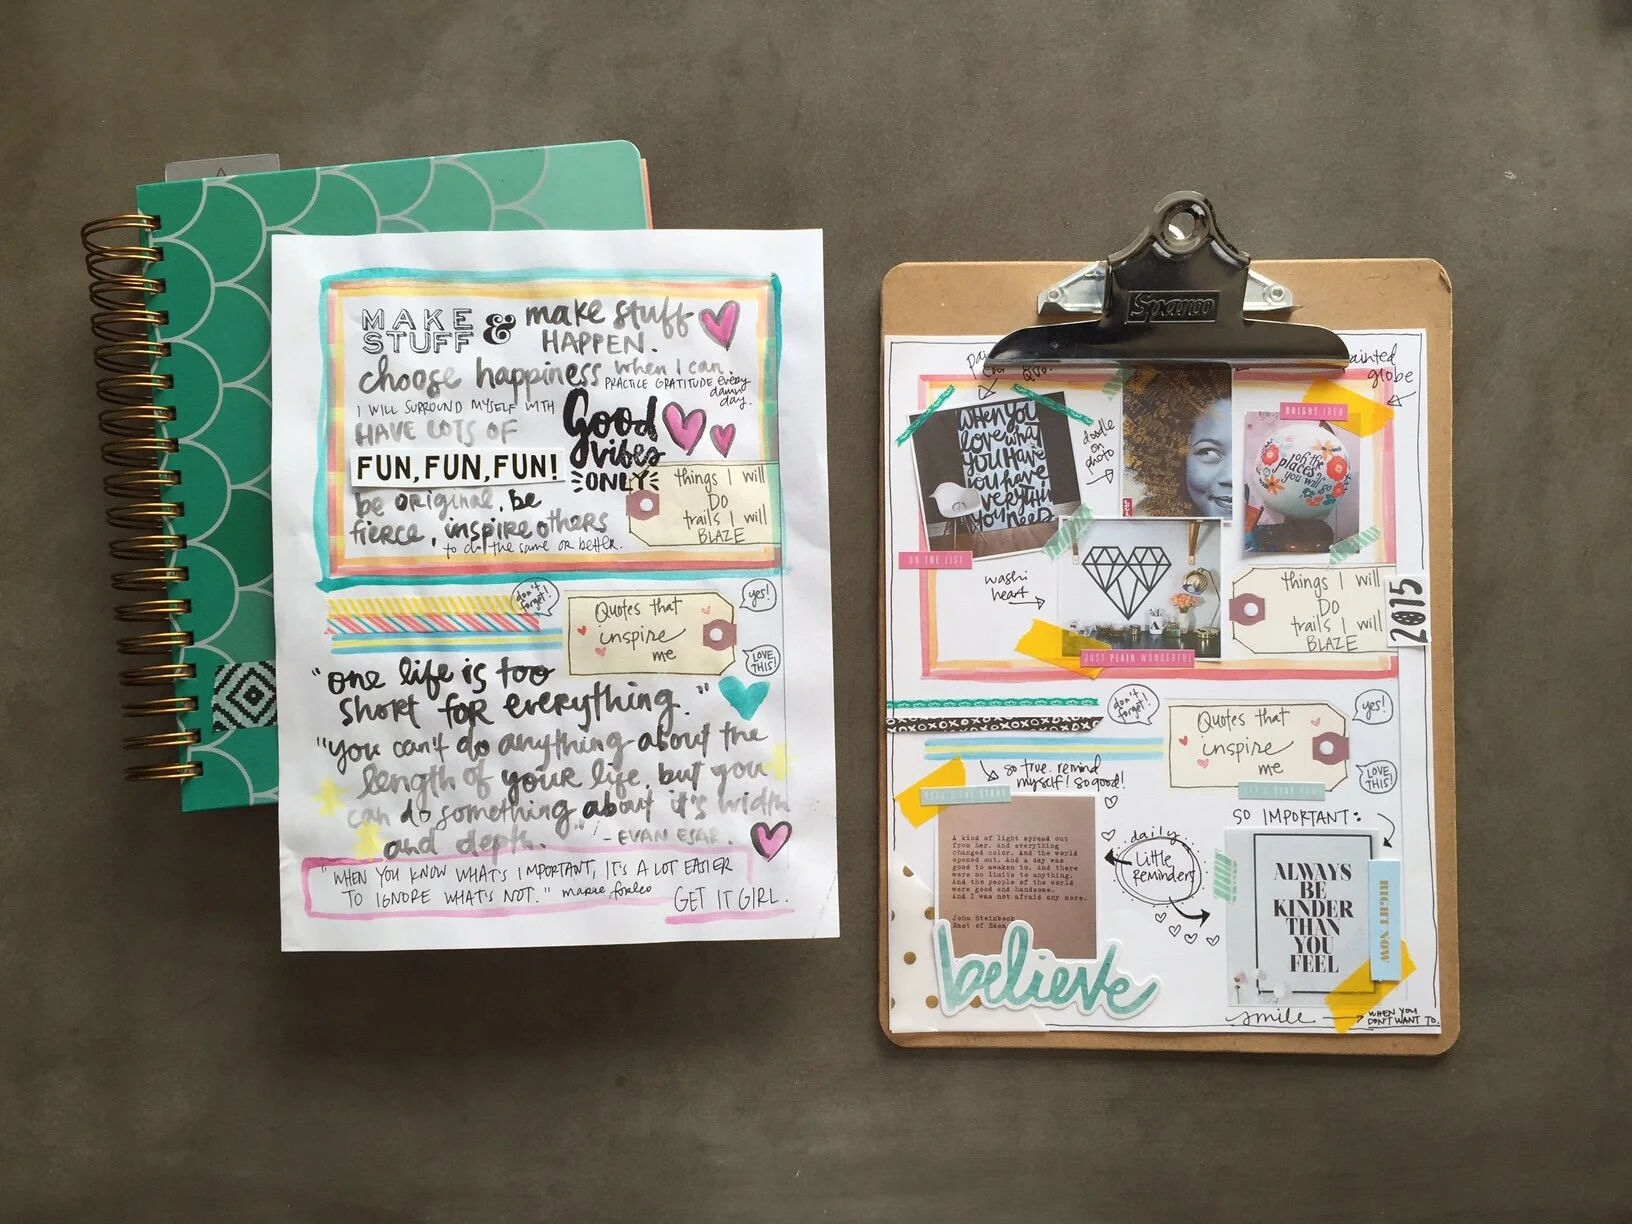 MAKE
STUFF
&
make stuff
HAPPEN.
choose happiness when I can.
PRACTICE GRATITUDE every
damn
day.
I WILL SURROUND MYSELF WITH
Good
vibes
ONLY
HAVE LOTS OF
FUN, FUN, FUN!
be original, be
fierce, inspire others
to do the same or better.
things I will
DO
trails I will
BLAZE
don't
forget!
Quotes that
inspire
me
yes!
LOVE
THIS!
"one life is too
short for everything."
"you can't do anything about the
length of your life, but you
can do something about it's width
and depth." - EVAN ESAR.
"WHEN YOU KNOW WHAT'S IMPORTANT, IT'S A LOT EASIER
TO IGNORE WHAT'S NOT." marie forleo
GET IT GIRL.
Sparco
painted
globe
WHEN YOU
love what
you Have
you have
everything
you NEED
doodle
on
photo
BRIGHT IDEA
oh the
places
you will go
ON THE LIST
washi
heart
JUST PLAIN WONDERFUL
things I will
DO
trails I will
BLAZE
2015
don't
forget!
Quotes that
inspire
me
yes!
LOVE
THIS!
so true. remind
myself! so good!
HERE'S THE STORY
A kind of light spread out
from her. And everything
changed color. And the world
opened out. And a day was
good to awaken to. And there
were no limits to anything.
And the people of the world
were good and handsome.
And I was not afraid any more.
John Steinbeck
East of Eden
believe
daily
Little
Reminders
SO IMPORTANT:
ALWAYS
BE
KINDER
THAN
YOU
FEEL
RIGHT NOW
smile
WHEN YOU
DON'T WANT TO.